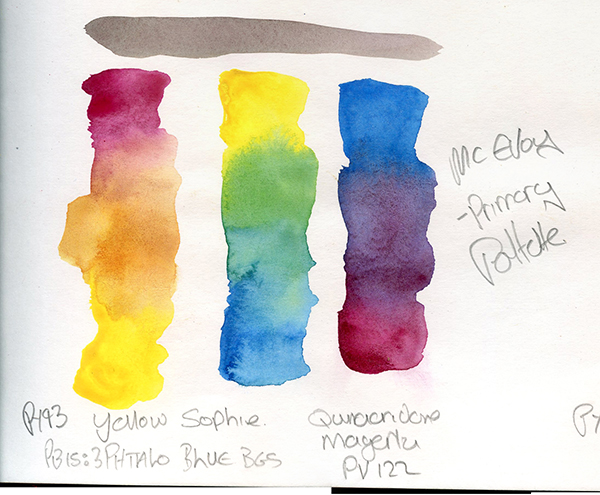 Mc Evoy
-Primary
Pallette
PY93 Yellow Sophie.
PB15:3 PHTALO BLUE BGS
Qunacridone
Magenta
PV122
PY